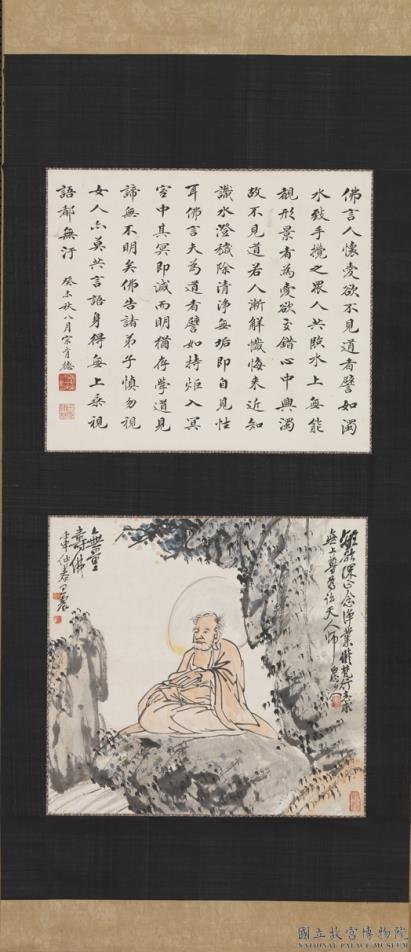 佛言人懷愛欲不見道者譬如濁
水致手攪之眾人共照水上無能
覩形景者為愛欲交錯心中興濁
故不見道若人漸解懺悔來近知
識水澄穢除清淨無垢即自見性
耳佛言夫為道者譬如持炬入冥
室中其冥即滅而明猶存學道見
諦無不明矣佛告諸弟子慎勿視
女人亦莫共言語身得無上
語都無汙
癸未秋八月
正念淨業
無上尊 天人師
無量
壽佛
仲春 王震
國立故宮博物院
NATIONAL PALACE MUSEUM